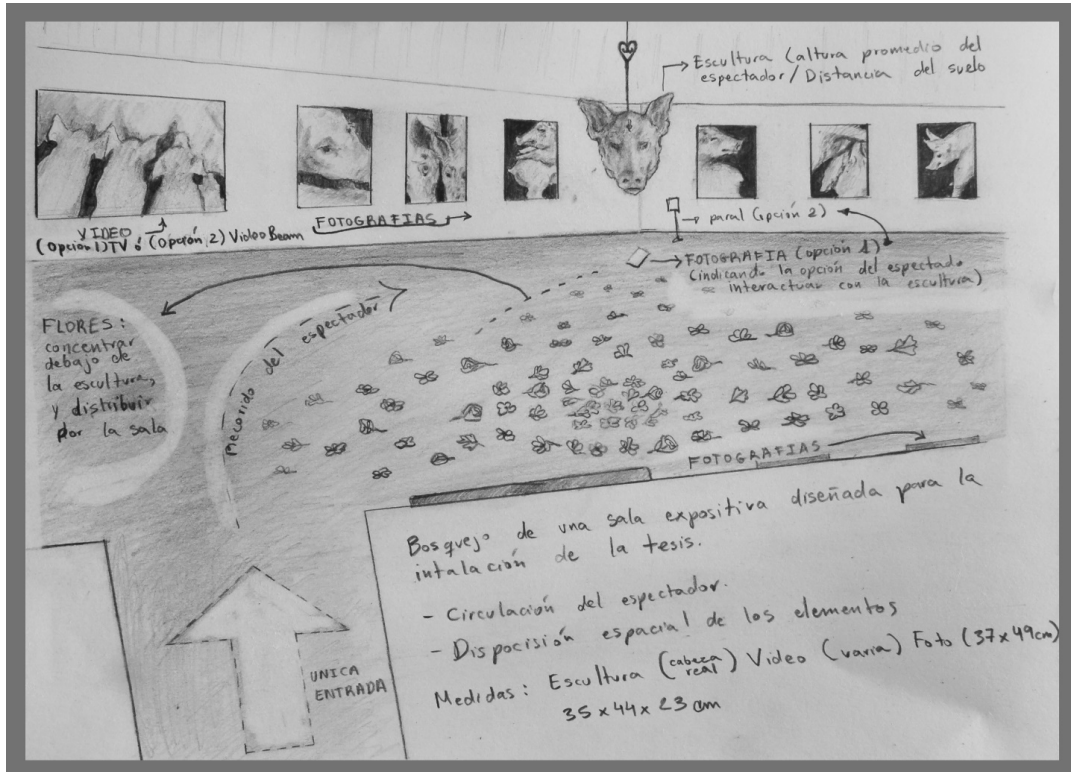 Escultura (altura promedio del
espectador/Distancia del suelo
VIDEO
(Opción 1) TV ó (Opción 2) Video Beam
FOTOGRAFIAS
paral (opción 2)
FOTOGRAFIA (opción 1)
(indicando la opción del espectado
interactuar con la escultura)
FLORES:
concentrar
debajo de
la escultura,
y distribuir
por la sala
recorrido del espectador
FOTOGRAFIAS
Bosquejo de una sala expositiva diseñada para la
intalación de la tesis.
- Circulación del espectador.
- Dispocisión espacial de los elementos
Medidas: Escultura (cabeza real) Video (varia) Foto (37x49cm)
35x44x23cm
UNICA
ENTRADA